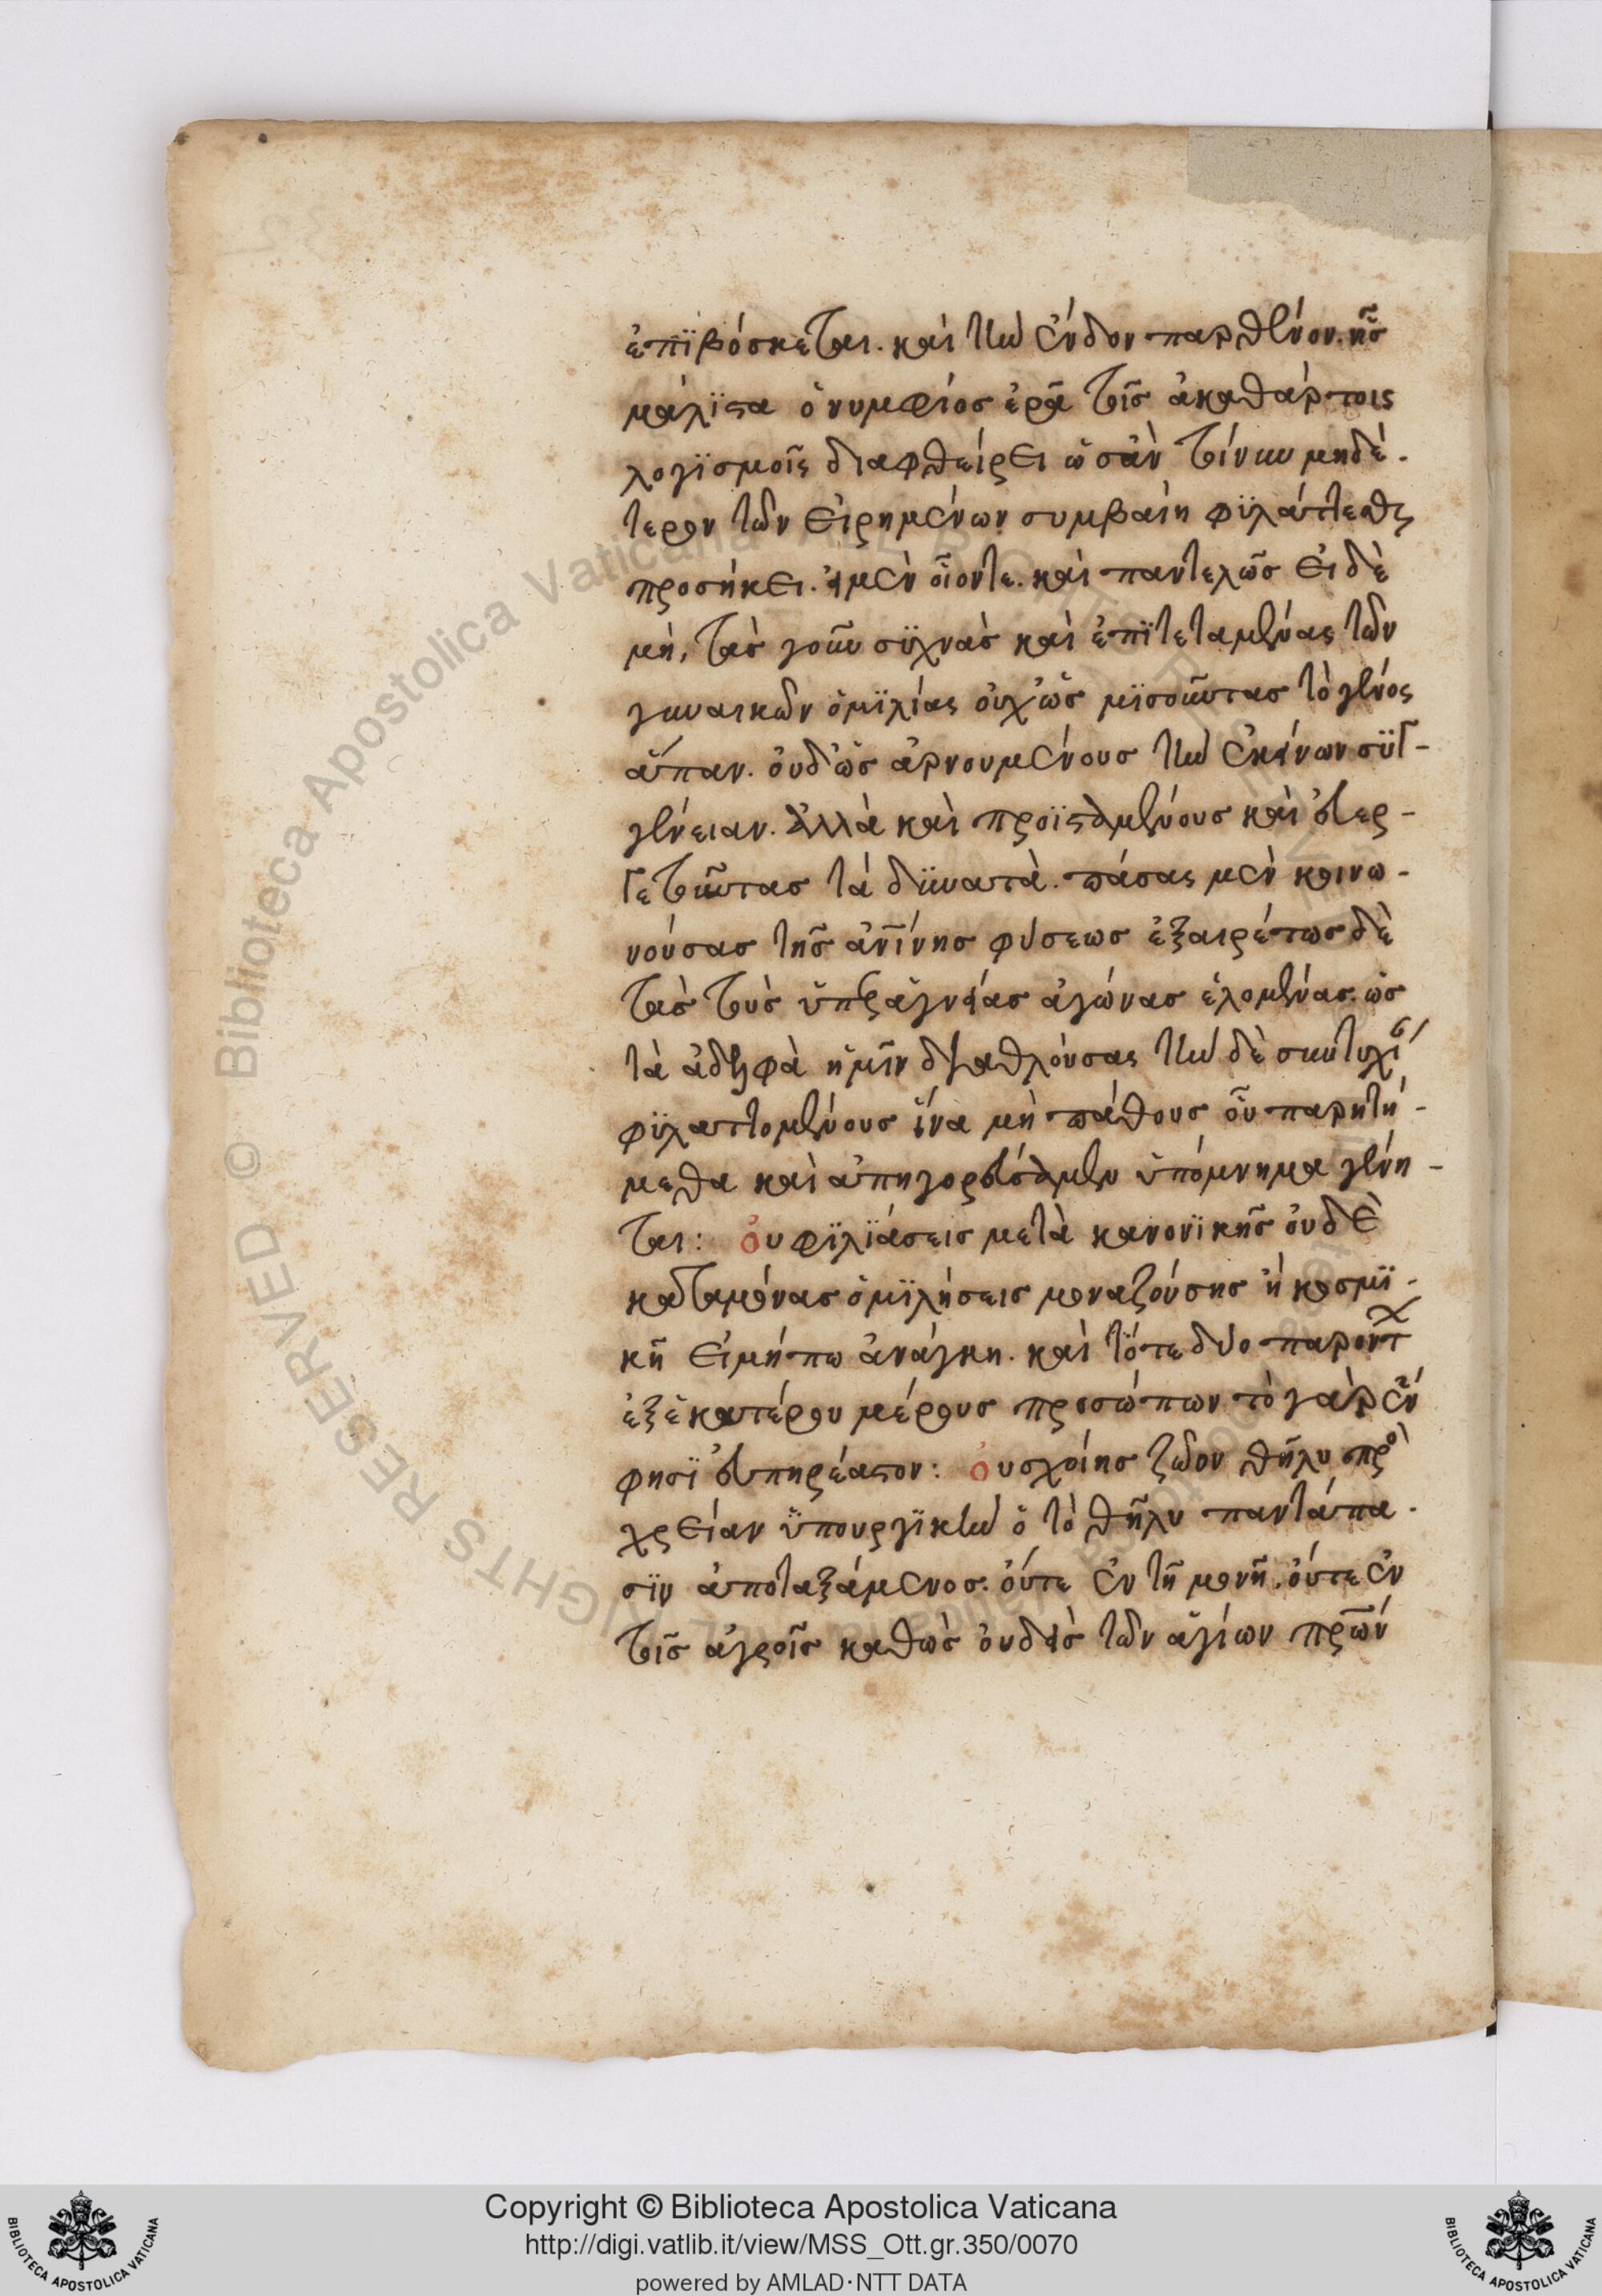 ἐπϊβόσκεται. καὶ τὴν ἔνδον παρθένον. ἧς
μάλϊστα ὁ νυμφίος ἐρᾶ τοῖς ἀκαθάρτοις
λογϊσμοῖς διαφθείρει ὡσὰν τοίνυν μηδέ-
τερον τῶν εἰρημένων συμβαίη φϋλάττεσθαι
προσήκει. εἰ μὲν οἷόντε. καὶ παντελῶς εἰ δὲ
μὴ, τὰς γοῦν συχνὰς καὶ ἐπϊτεταμένας τῶν
γυναικῶν ὁμϊλίας οὐχ ὡς μϊσοῦντας τὸ γένος
ἅπαν. οὐδ' ὡς ἀρνουμένους τὴν ἐκείνων συγ-
γένειαν. ἀλλὰ καὶ προϊσταμένους καὶ εὐερ-
γετοῦντας τὰ δϋνατὰ. πάσας μὲν κοινω-
νούσας τῆς ἀνίνης φύσεως ἐξαιρέτως δὲ
τὰς τοὺς ὑπὲρ ἁγνείας ἀγώνας ἑλομένας. ὡς
τὰ ἀδελφὰ ἡμῖν διαθλούσας τὴν δὲ συντυχί
φϋλαττομένους ἵνα μὴ πάθους οὗ παρητή-
μεθα καὶ ἀπηγορεύσαμεν ὑπόμνημα γένη-
ται: οὐ φϊλϊάσεις μετὰ κανονϊκῆς οὐδὲ
καταμόνας ὁμϊλήσεις μοναζούσης ἢ κοσμϊ-
κῆ εἰμήπω ἀνάγκη. καὶ τότε δύο παρόντ
ἐξ ἑκατέρου μέρους προσώπων τὸ γὰρ ἕν
φησϊ εὐεπηρέαστον: οὐ σχοίης ζῶον θῆλυ πρὸ
χρείαν ὑπουργϊκὴν ὁ τὸ θῆλυ παντάπα-
σϊν ἀποταξάμενος. οὔτε ἐν τῆ μονῆ. οὔτε ἐν
τοῖς ἀγροῖς καθὼς οὐδεὶς τῶν ἁγίων πρῶν
Copyright © Biblioteca Apostolica Vaticana
http://digi.vatlib.it/view/MSS_Ott.gr.350/0070
powered by AMLAD·NTT DATA
BIBLIOTECA APOSTOLICA VATICANA
BIBLIOTECA APOSTOLICA VATICANA
© Biblioteca Apostolica Vaticana ALL RIGHTS RESERVED